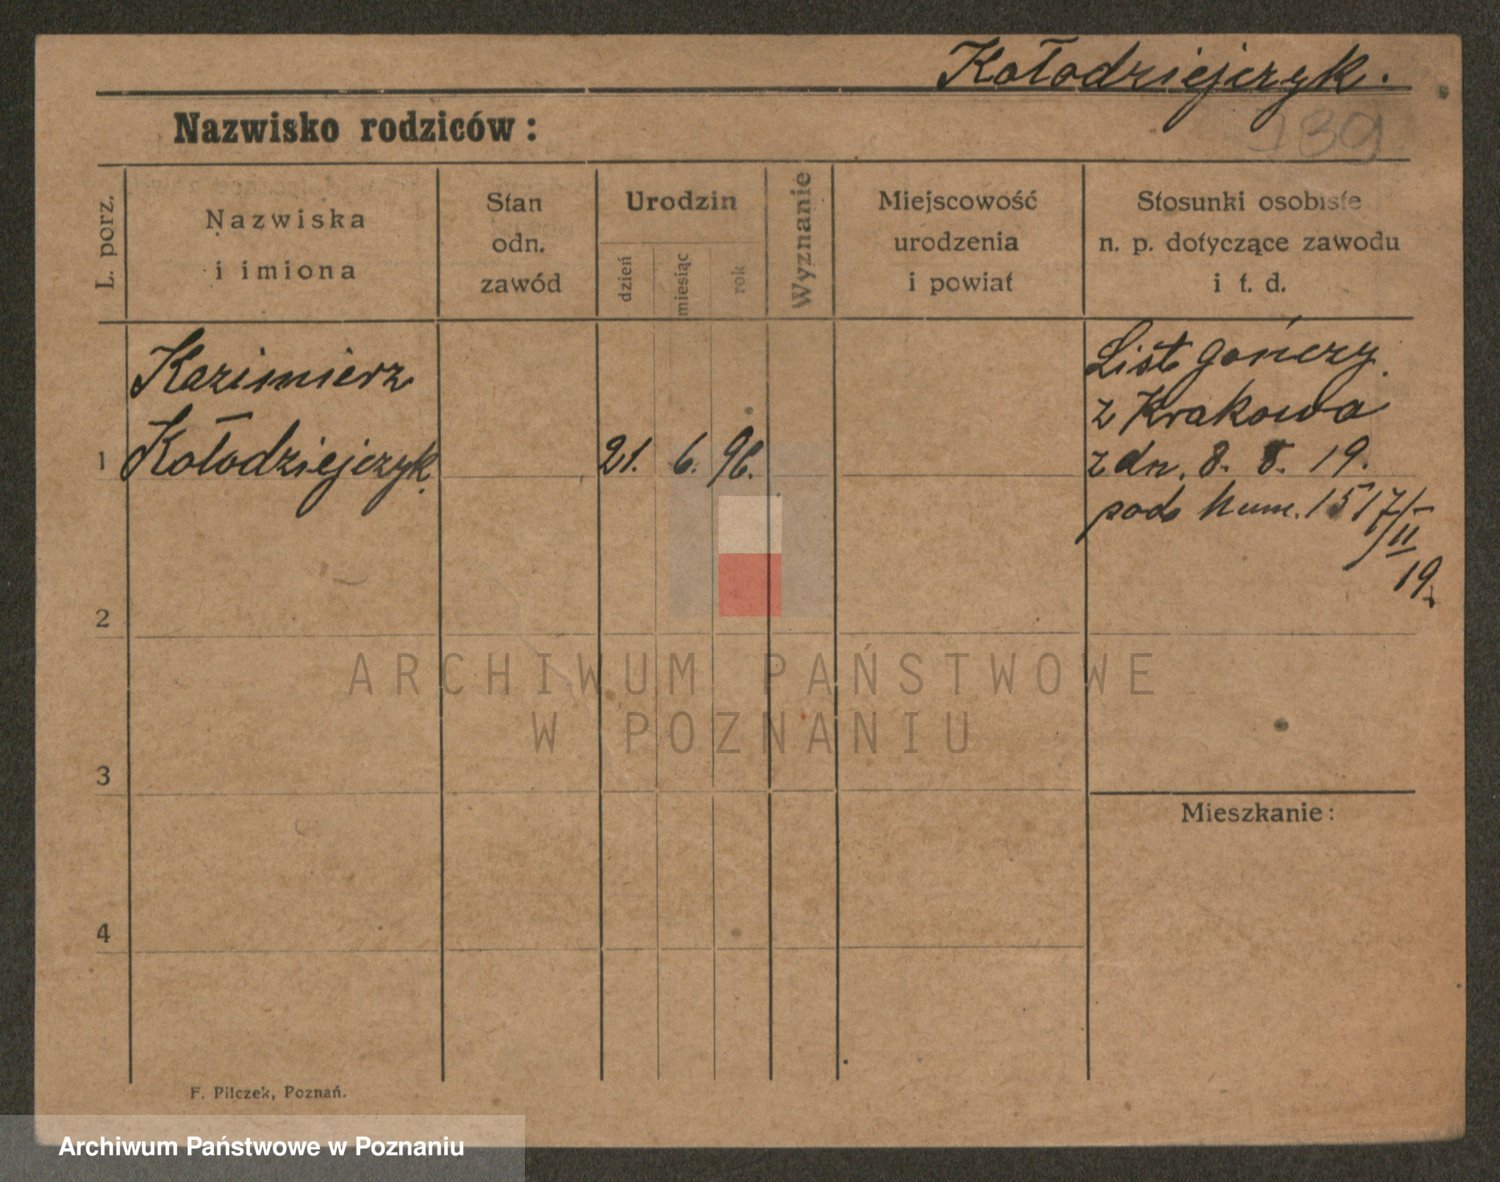 Kołodziejczyk.
139
Nazwisko rodziców:
L. porz.
Nazwiska
i imiona
Stan
odn.
zawód
Urodzin
dzień
miesiąc
rok
Wyznanie
Miejscowość
urodzenia
i powiat
Stosunki osobiste
n. p. dotyczące zawodu
i t. d.
1
Kazimierz
Kołodziejczyk.
21. 6. 96.
List gończy
z Krakowa
z dn. 8. 8. 19.
pod Num. 1517/II
19.
2
ARCHIWUM PAŃSTWOWE
W POZNANIU
3
Mieszkanie:
4
F. Pilczek, Poznań.
Archiwum Państwowe w Poznaniu